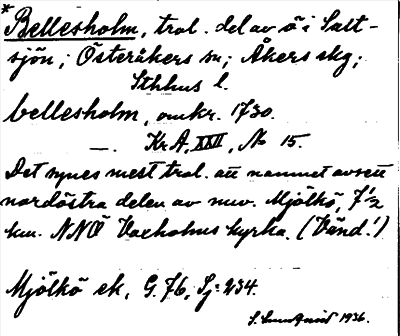 * Bellesholm, trol. del av ö i Salt-
sjön; Österåkers sn; Åkers skg;
Sthlms l.
bellesholm, omkr. 1730.
—. KrA, XXII, No 15.
Det synes mest trol. att namnet avsett
nordöstra delen av nuv. Mjölkö, 7 1/2
km. NNÖ Vaxholms kyrka. (Vänd!)
Mjölkö ek, G. 76, Sj: 234.
S. 1936.